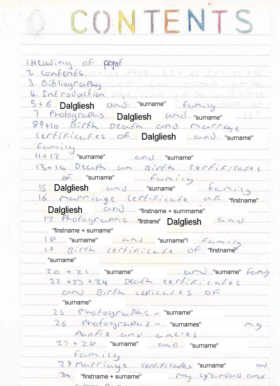 CONTENTS
1 Heading of
2 Contents
3 Bibliography
4 Introduction
5+6 Dalgliesh and "surname" family
7 Photographs Dalgliesh and "surname"
8 9+10 Birth Death and marrage
certificates of Dalgliesh and "surname"
family
11+12 "surname" and "surname"
13+14 Death an Birth certificates
of "surname" family
15 Dalgliesh and "surname" family
16 marriage certificate of "firstname"
Dalgliesh and "firstname + surname"
17 Photographs "firstname" Dalgliesh and
"firstname + surname"
18 "surname" and "surname" family
19 Birth certificate of "firstname"
"surname"
20 + 21 "surname" and "surname" family
22 +23 +24 Death certificates
and Birth of
"surname"
25 Photographs - "surname"
26 Photographs - "surnames" my
Aunties and uncles
27 +28 "surname" and "surname"
family
29 Marriage certificates "surname" and
30 "firstname + surname" my